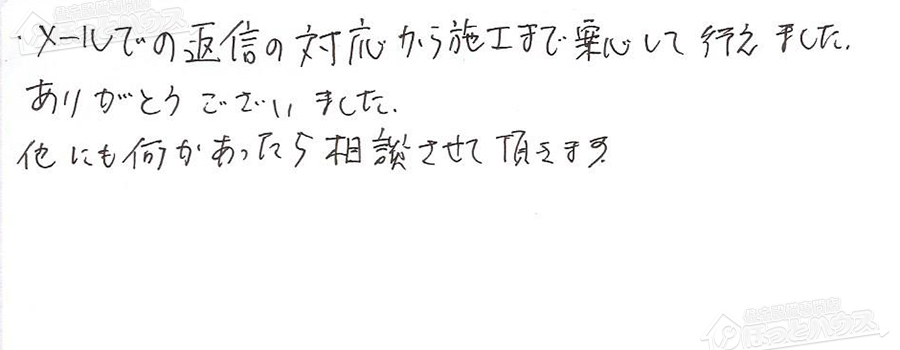 ・メールでの返信の対応から施工まで安心して行えました.
ありがとうございました.
他にも何かあったら相談させて頂きます
ほっとハウス